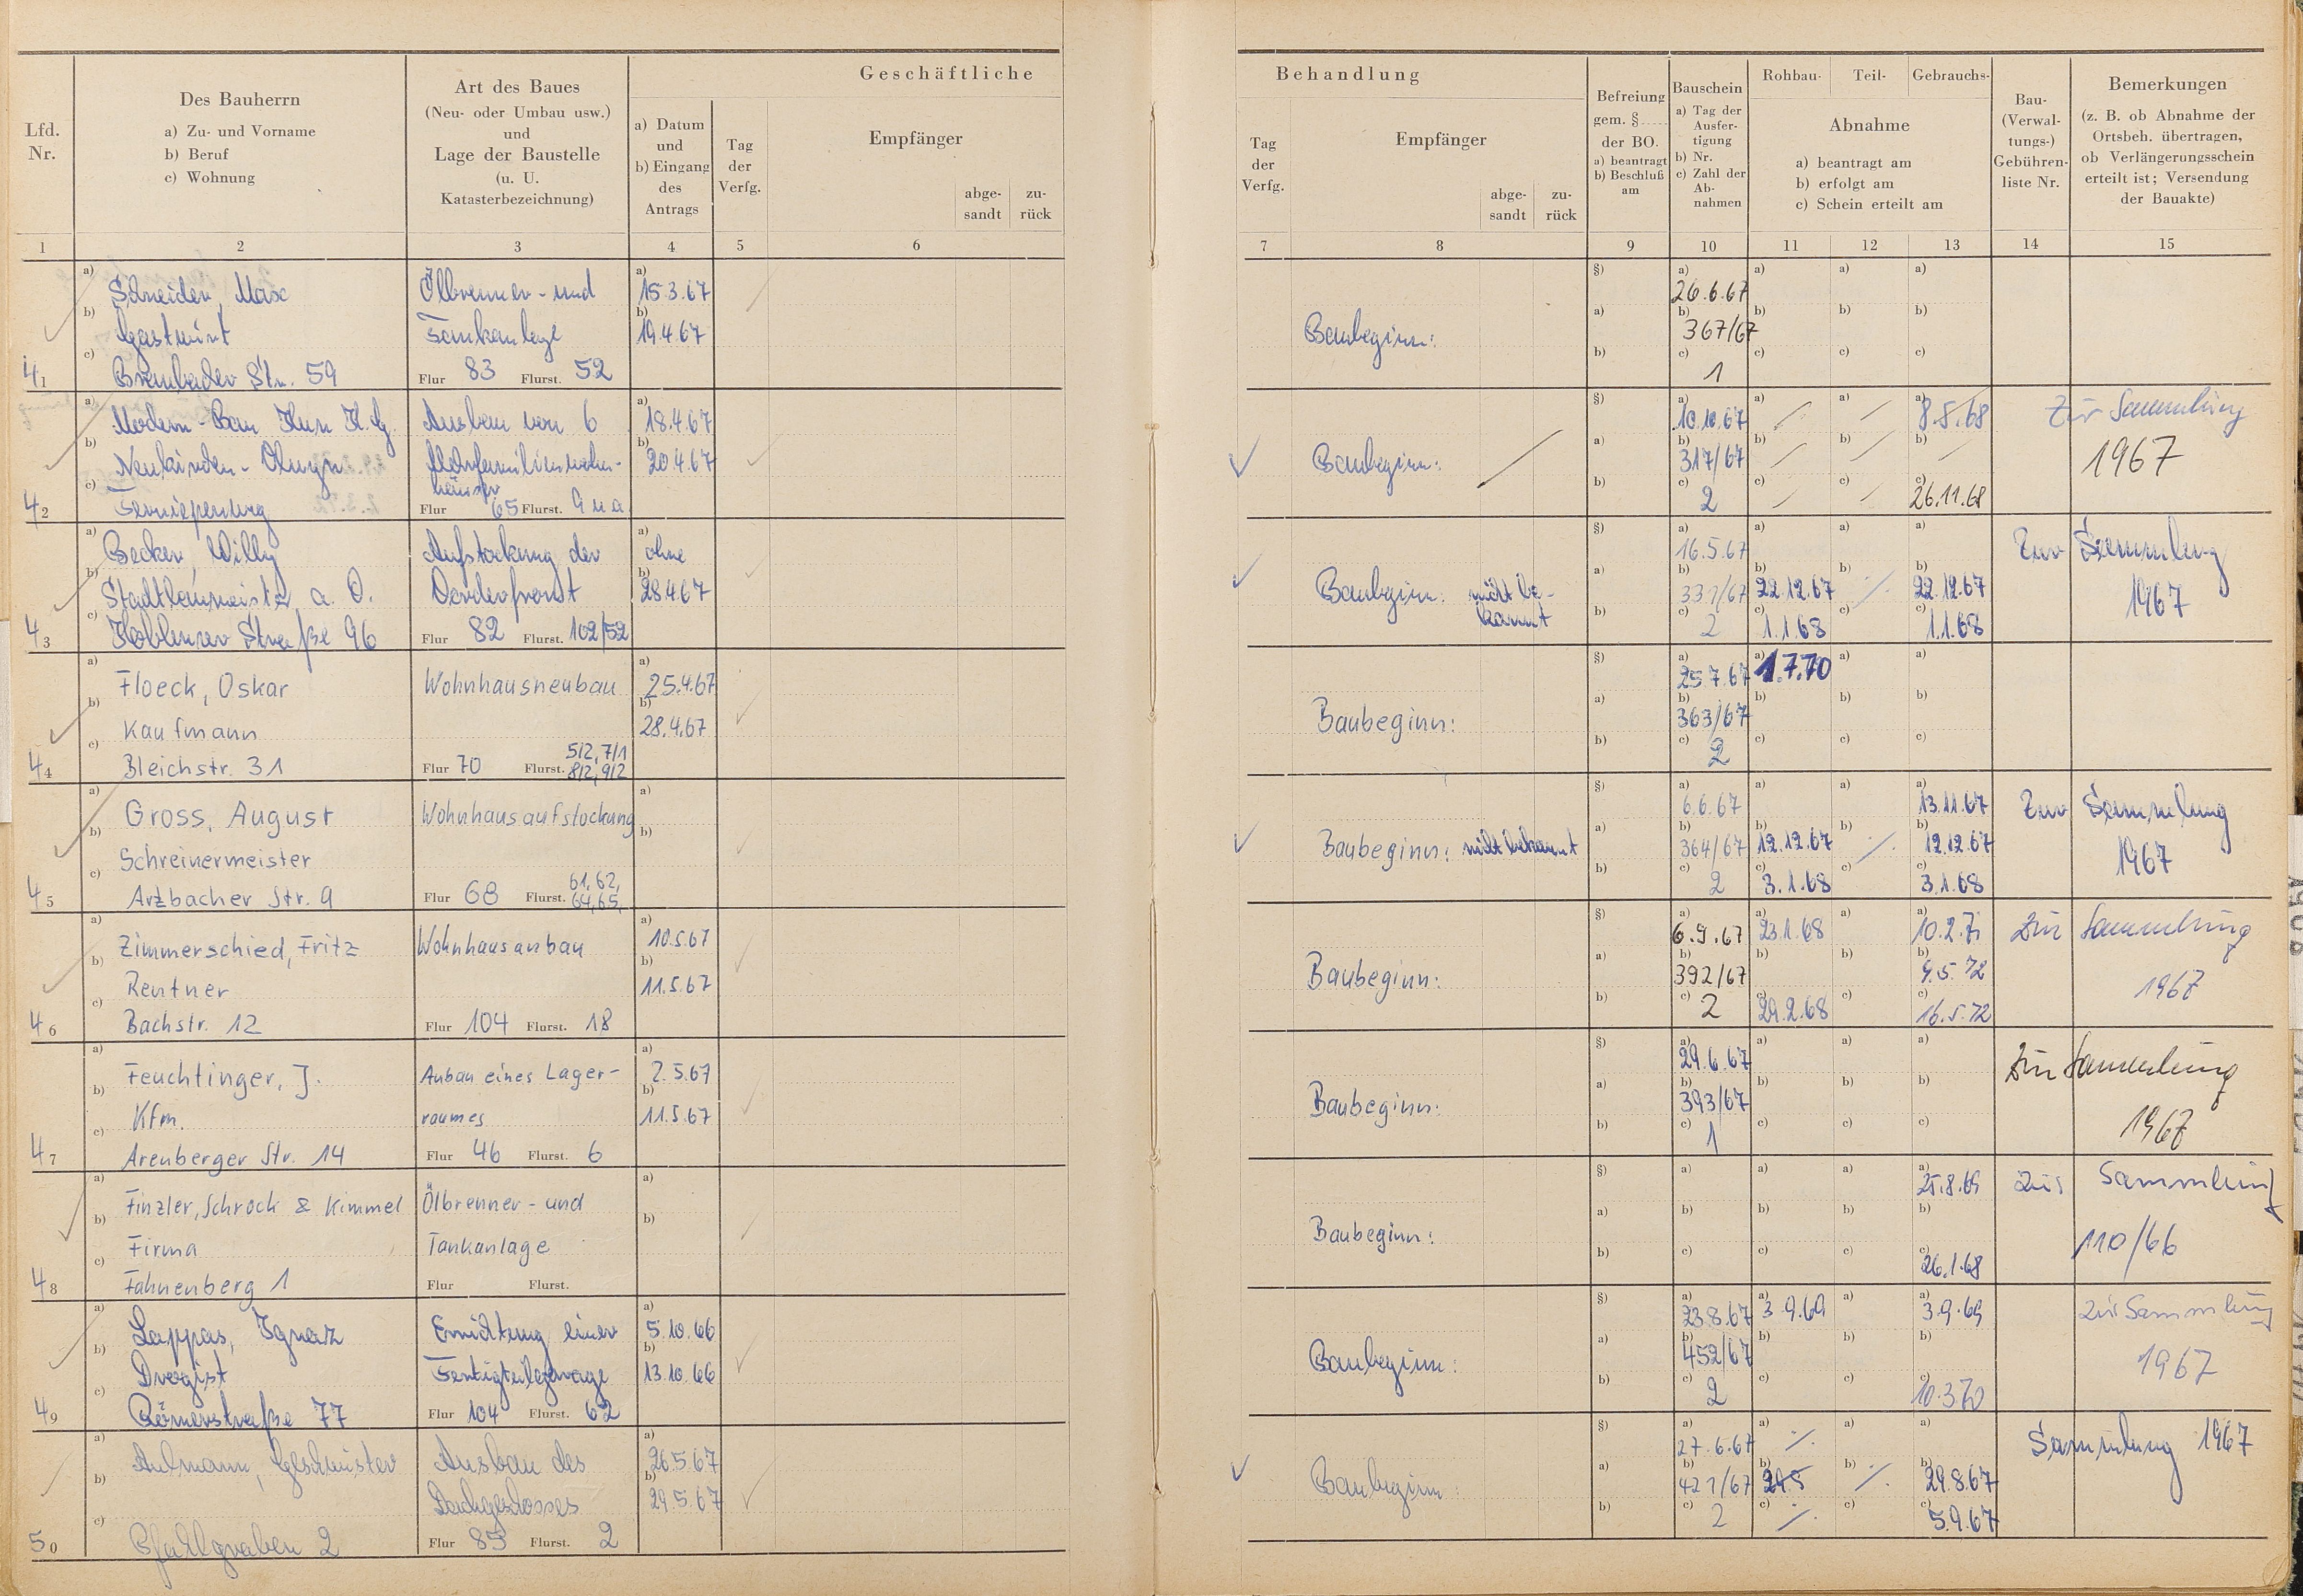 Geschäftliche
Behandlung
Lfd.
Nr.
Des Bauherrn
a) Zu- und Vorname
b) Beruf
c) Wohnung
Art des Baues
(Neu- oder Umbau usw.)
und
Lage der Baustelle
(u. U.
Katasterbezeichnung)
a) Datum
und
b) Eingang
des
Antrags
Tag
der
Verfg.
Empfänger
abge-
sandt
zu-
rück
Tag
der
Verfg.
Empfänger
abge-
sandt
zu-
rück
Befreiung
gem. §
der BO.
a) beantragt
b) Beschluß
am
Bauschein
a) Tag der
Ausfer-
tigung
b) Nr.
c) Zahl der
Ab-
nahmen
Rohbau- Teil- Gebrauchs-
Abnahme
a) beantragt am
b) erfolgt am
c) Schein erteilt am
Bau-
(Verwal-
tungs-)
Gebühren-
liste Nr.
Bemerkungen
(z. B. ob Abnahme der
Ortsbeh. übertragen,
ob Verlängerungsschein
erteilt ist; Versendung
der Bauakte)
1 2 3 4 5 6 7 8 9 10 11 12 13 14 15
a) Schneider, Max Ölbrenner- und a) 15.3.67 §) a) 26.6.67 a) a) a)
b) Gastwirt Tankanlage b) 19.4.67 Baubeginn: a) b) 367/67 b) b) b)
41 c) Str. 59 Flur 83 Flurst. 52 b) c) 1 c) c) c)
a) Modern-Bau K.G. Ausbau von 6 a) 18.4.67 §) a) 10.10.67 a) / a) / a) 8.5.68 Zur Sammlung
b) Mehrfamilienwohn- b) 20.4.67 Baubeginn: / a) b) 317/67 b) / b) / b) / 1967
häuser
42 c) Flur 65 Flurst. 9 u.a. b) c) 2 c) / c) / c) 26.11.68
a) Becker, Willy Aufstockung der a) ohne §) a) 16.5.67 a) a) a) Zur Sammlung
b) a. D. Vorderfront b) 28.4.67 Baubeginn: nicht be- a) b) 331/67 b) 22.12.67 b) ./. b) 22.12.67 1967
kannt
43 c) Koblenzer Straße 96 Flur 82 Flurst. 102/52 b) c) 2 c) 1.1.68 c) c) 1.1.68
a) Floeck, Oskar Wohnhausneubau a) 25.4.67 §) a) 25.7.67 a) 1.7.70 a) a)
b) Kaufmann b) 28.4.67 Baubeginn: a) b) 363/67 b) b) b)
5/2, 7/1
44 c) Bleichstr. 31 Flur 70 Flurst. 8/2, 9/2 b) c) 2 c) c) c)
a) Gross, August Wohnhausaufstockung a) §) a) 6.6.67 a) a) a) 13.11.67 Zur Sammlung
b) Schreinermeister b) Baubeginn: nicht bekannt a) b) 364/67 b) 12.12.67 b) ./. b) 12.12.67 1967
61, 62,
45 c) Arzbacher Str. 9 Flur 68 Flurst. 64, 65, b) c) 2 c) 3.1.68 c) c) 3.1.68
a) Zimmerschied, Fritz Wohnhausanbau a) 10.5.67 §) a) 6.9.67 a) 23.1.68 a) a) 10.2.71 Zur Sammlung
b) Rentner b) 11.5.67 Baubeginn: a) b) 392/67 b) b) b) 9.5.72 1967
46 c) Bachstr. 12 Flur 104 Flurst. 18 b) c) 2 c) 29.2.68 c) c) 16.5.72
a) Feuchtinger, J. Anbau eines Lager- a) 2.5.67 §) a) 29.6.67 a) a) a) Zur Sammlung
b) Kfm. raumes b) 11.5.67 Baubeginn: a) b) 393/67 b) b) b) 1967
47 c) Arenberger Str. 14 Flur 46 Flurst. 6 b) c) 1 c) c) c)
a) Finzler, Schrock & Kimmel Ölbrenner- und a) §) a) a) a) a) 25.8.69 Zur Sammlung
b) Firma Tankanlage b) Baubeginn: a) b) b) b) b) 110/66
48 c) Fahnenberg 1 Flur Flurst. b) c) c) c) c) 26.1.68
a) Lappas, Ignaz Errichtung einer a) 5.10.66 §) a) 23.8.67 a) 3.9.69 a) a) 3.9.69 Zur Sammlung
b) Drogist Fertigteilgarage b) 13.10.66 Baubeginn: a) b) 452/67 b) b) b) 1967
49 c) Römerstraße 77 Flur 104 Flurst. 62 b) c) 2 c) c) c) 10.3.70
a) Aulmann, Geschwister Ausbau des a) 26.5.67 §) a) 27.6.67 a) ./. a) a) Sammlung 1967
b) Dachgeschosses b) 29.5.67 Baubeginn: a) b) 421/67 b) b) ./. b) 29.8.67
50 c) Pfahlgraben 2 Flur 85 Flurst. 2 b) c) 2 c) ./. c) c) 5.9.67